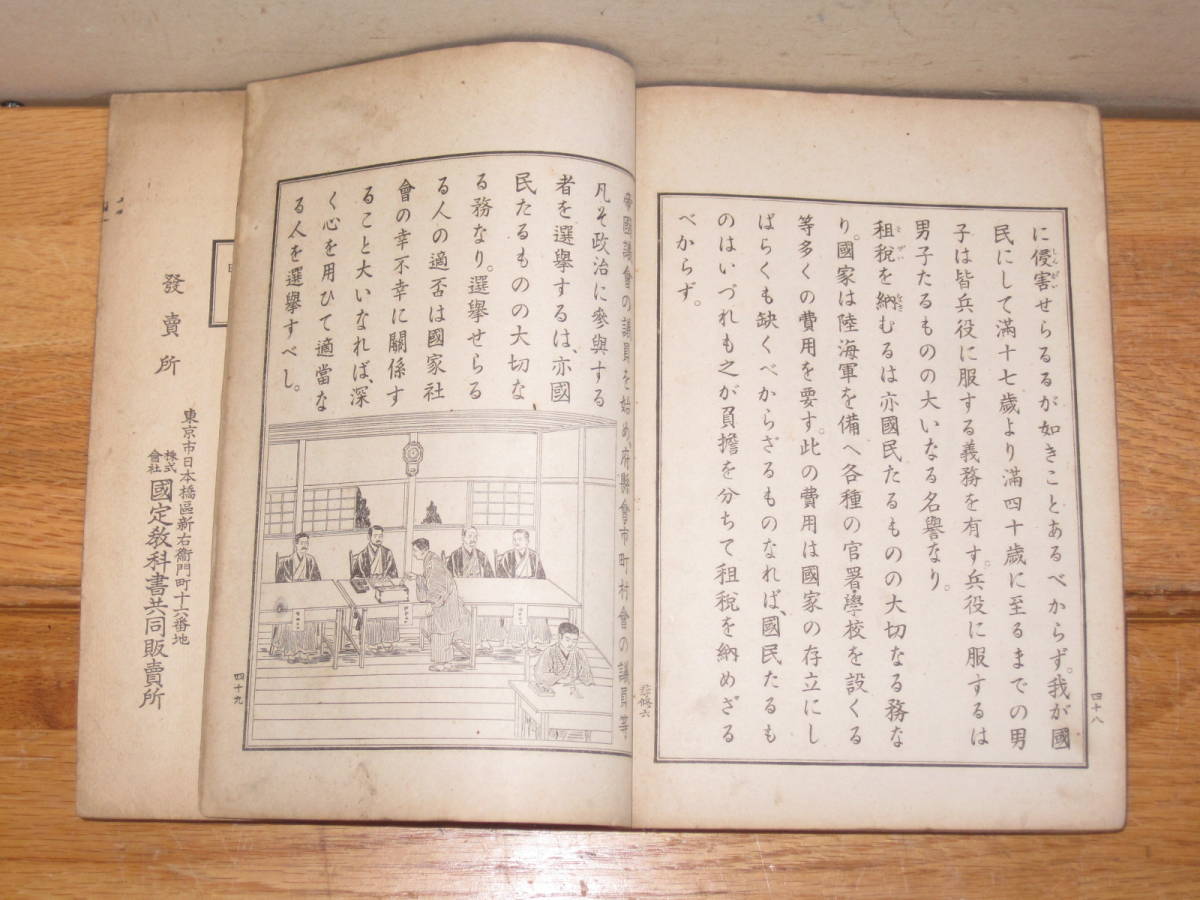 に侵害せらるるが如きことあるべからず。我が國
民にして滿十七歲より滿四十歲に至るまでの男
子は皆兵役に服する義務を有す。兵役に服するは
男子たるものの大いなる名譽なり。
租稅を納むるは亦國民たるものの大切なる務な
り。國家は陸海軍を備へ各種の官署・學校を設くる
等多くの費用を要す。此の費用は國家の存立にし
ばらくも缺くべからざるものなれば、國民たるも
のはいづれも之が負擔を分ちて租稅を納めざる
べからず。
四十八
修六
帝國議會の議員を始め、府縣會市町村會の議員等
凡そ政治に參與する
者を選擧するは、亦國
民たるものの大切な
る務なり。選擧せらる
る人の適否は國家社
會の幸不幸に關係す
ること大いなれば、深
く心を用ひて適當な
る人を選擧すべし。
四十九
發賣所
東京市日本橋區新右衞門町十六番地
株式會社 國定敎科書共同販賣所